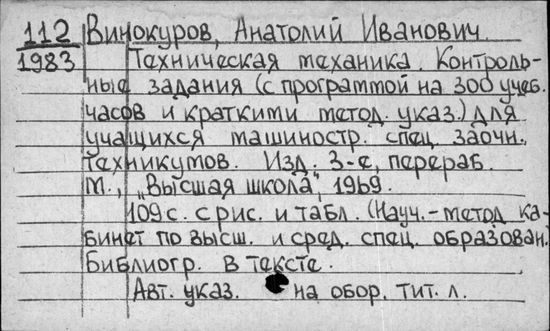 112 Винокуров, Анатолий Иванович.
1983 Техническая механика. Контроль-
ные задания (с программой на 300 учеб.
часов и краткими метод. указ.) для
учащихся машиностр. спец. заочн.
техникумов. Изд. 3-е, перераб.
М., „Высшая школа", 1969.
109 с. с рис. и табл. (Науч.-метод. ка-
бинет по высш. и сред. спец. образован.
Библиогр. в тексте.
Авт. указ. на обор. тит. л.